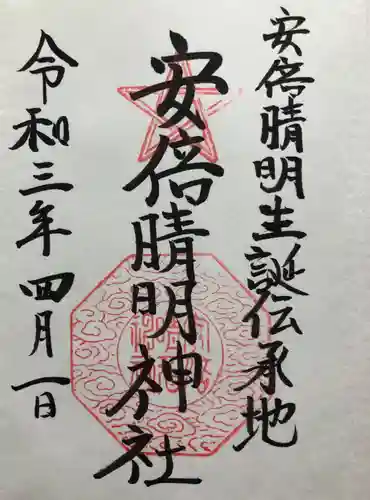 安倍晴明生誕伝承地
安倍晴明神社
令和三年四月一日